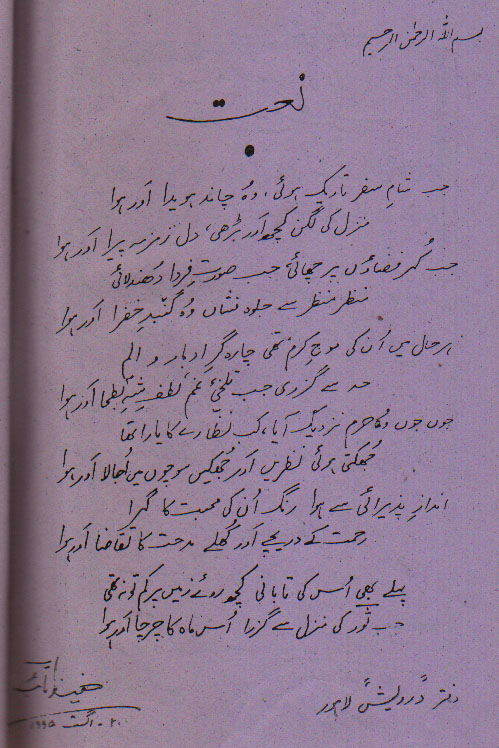 بسم اللہ الرحمٰن الرحیم
نعت
جب شامِ سفر تاریک ہوئی، وہ چاند ہویدا اَور ہوا
منزل کی لگن کچھ اَور بڑھی، دل زمزمہ پیرا اَور ہوا
جب کُہر فضاؤں پر چھائی، جب صورتِ فردا دُھندلائی
منظر منظر سے جلوہ فشاں وہ گنبدِ خضرا اَور ہوا
ہر حال میں اُن کی موجِ کرم تھی چارہ گرِ ادبار و الم
حد سے گزری جب تلخیِ غم، لطفِ شہِ بطحا اَور ہوا
جوں جوں وہ حرم نزدیک آیا، کب نظارے کا یارا تھا
جُھکتی ہوئی نظریں اَور جُھکیں سوچوں میں اُجالا اَور ہوا
اندازِ پذیرائی سے ہوا رنگ اُن کی محبت کا گہرا
رحمت کے دریچے اَور کُھلے مدحت کا تقاضا اَور ہوا
پہلے بھی اُس کی تابانی کچھ روئے زمیں پر کم تو نہ تھی
جب ثَور کی منزل سے گزرا اُس ماہ کا چرچا اَور ہوا
حفیظ تائب
۲۰ - اگست ۱۹۹۵
دفتر "درویش" لاہور